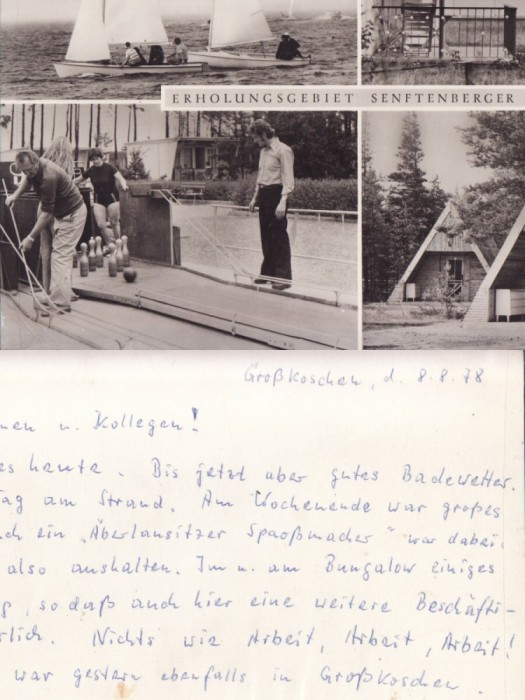 ERHOLUNGSGEBIET SENFTENBERGER
Großkoschen, d. 8.8.78
nen u. Kollegen!
es heute. Bis jetzt aber gutes Badewetter.
Tag am Strand. Am Wochenende war großes
ch ein „Oberlausitzer Spaoßmacher" war dabei.
also aushalten. Im u. am Bungalow einiges
g, so daß auch hier eine weitere Beschäfti-
rlich. Nichts wie Arbeit, Arbeit, Arbeit!
war gestern ebenfalls in Großkoschen